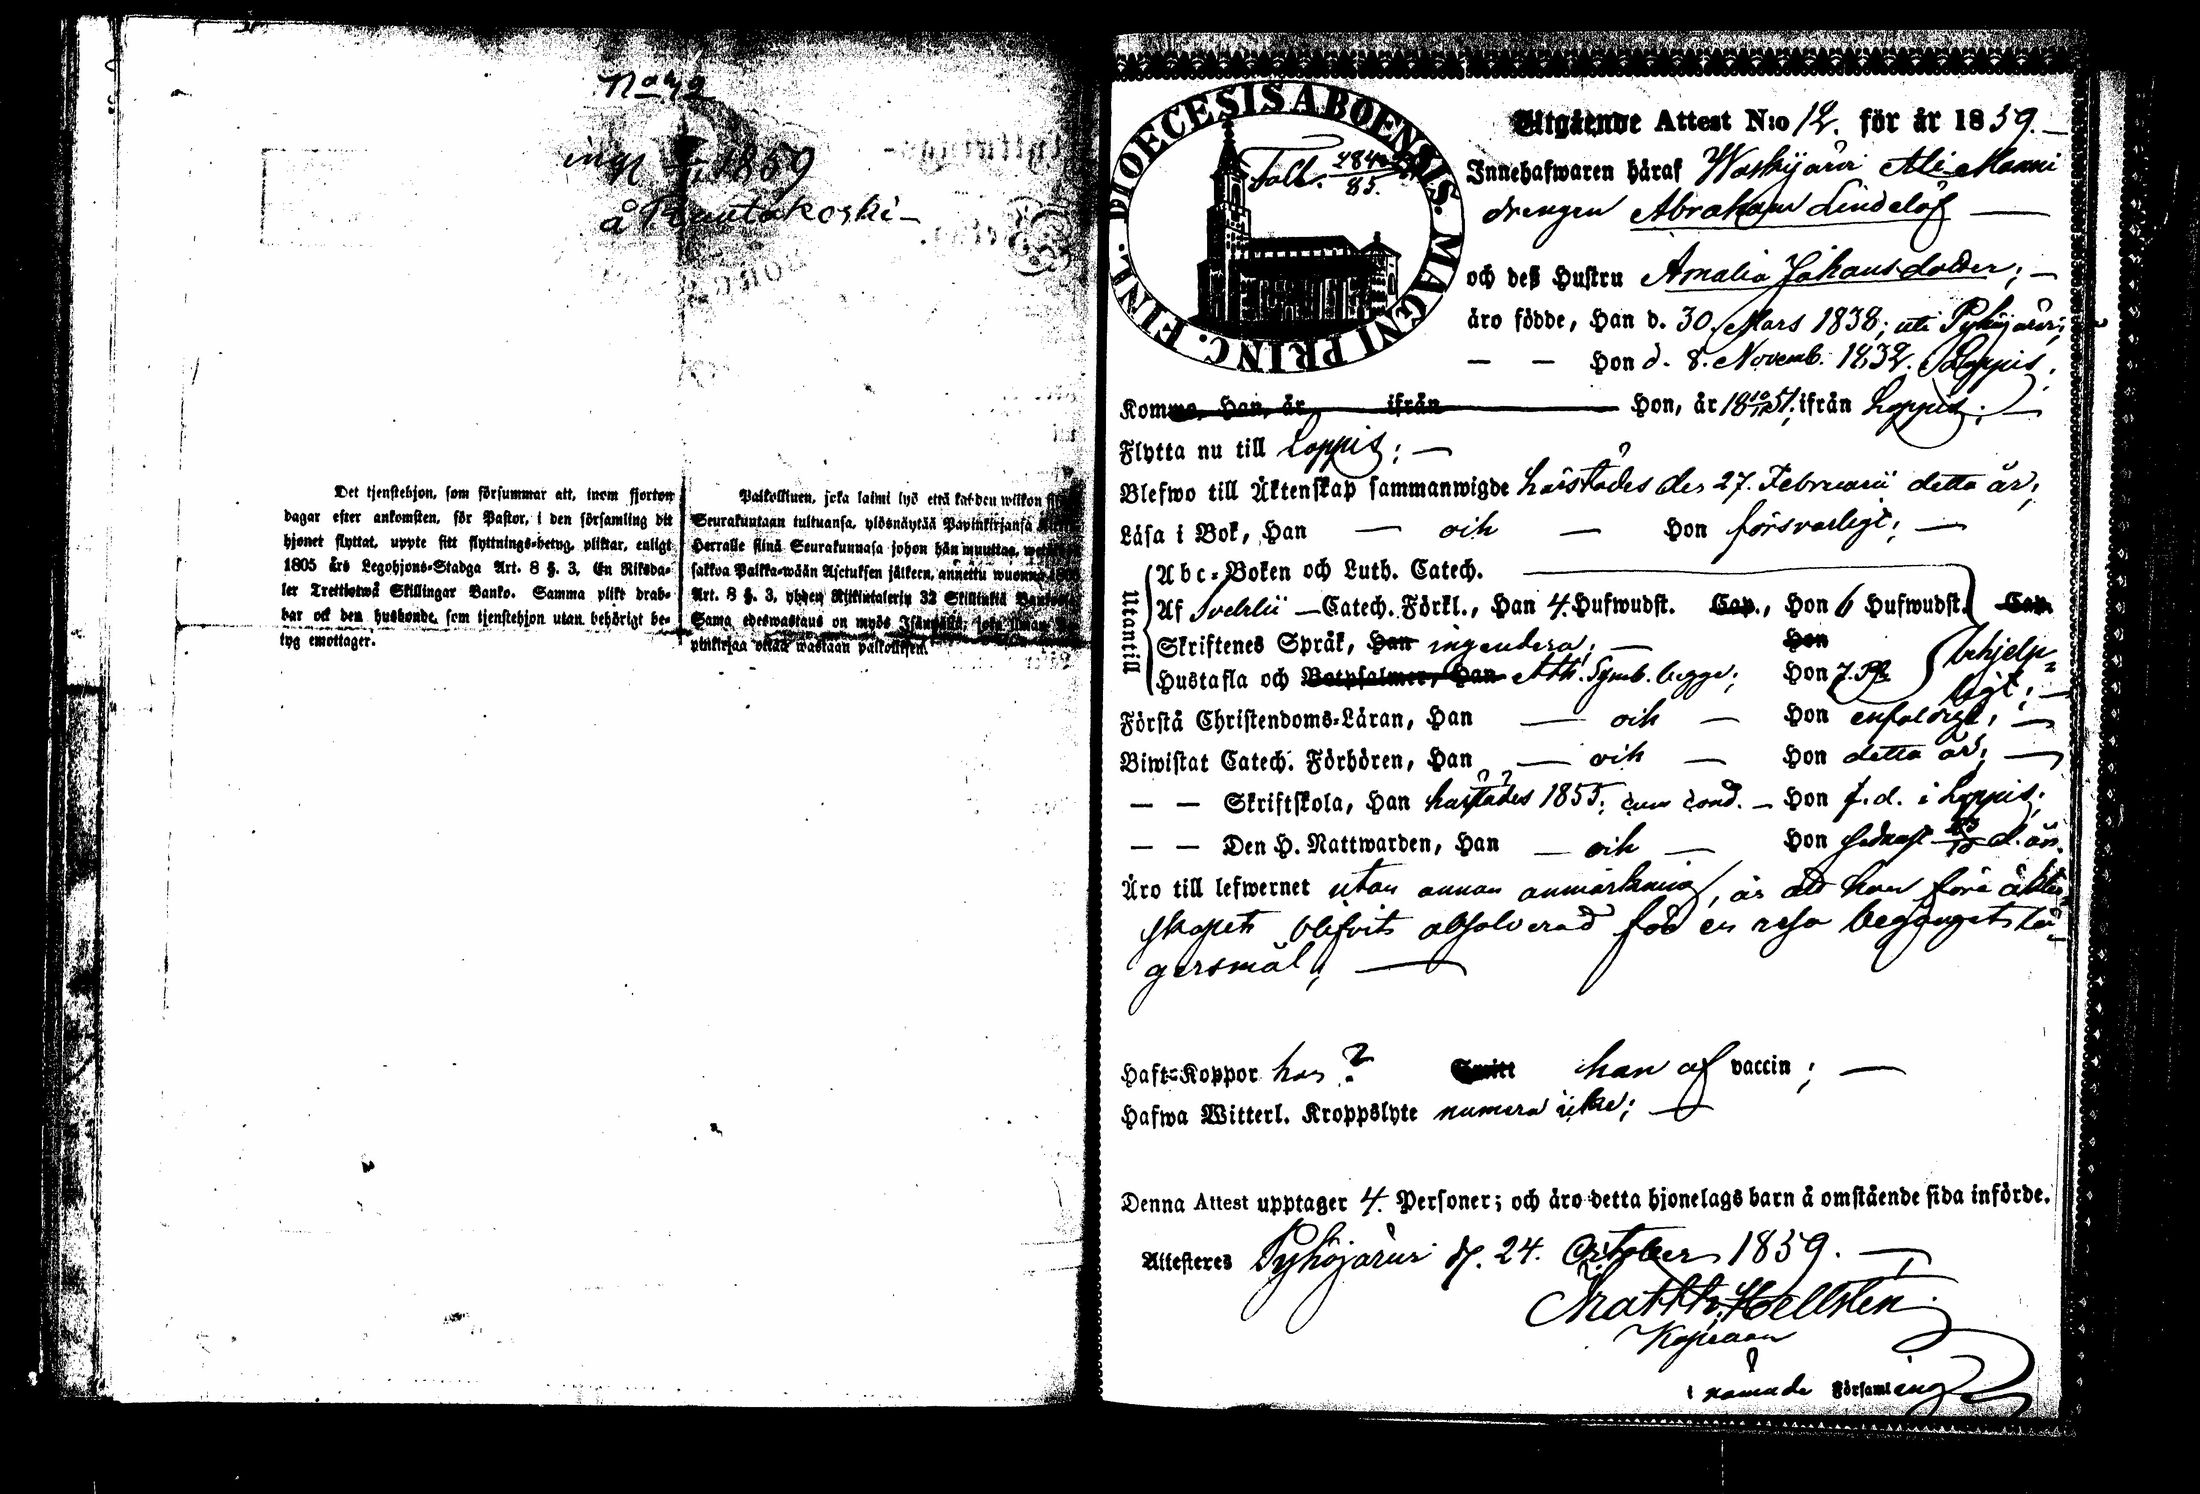 No 42
1859
å Rautakoski
Det tjenstehjon, som försummar att, inom fjorton
dagar efter ankomsten, för Pastor, i den församling dit
hjonet flyttat, uppte sitt flyttnings-betyg, pliktar, enligt
1805 års Legohjons-Stadga Art. 8 §. 3, En Riksda-
ler Trettiotwå Skillingar Banko. Samma plikt drab-
bar ock den husbonde, som tjenstehjon utan behörigt be-
tyg emottager.
Palkollinen, joka laimi lyö että kahden wiikon
Seurakuntaan tultuansa, ylösnäyttää Papinkirjansa
Herralle siinä Seurakunnasa johon hän muuttaa,
sakkoa Palkka-wään Asetuksen jälkeen, annettu wuonna
Art. 8 §. 3, yhden Riikintalerin 32 Skillinkiä
Sama edeswastaus on myös Isännällä, joka ilman
pinkirjaa ottaa wastaan palkollisen.
DIOECESIS ABOENSIS. MAGNI PRINC. FINL.
Utgående Attest N:o 12. för år 1859.
Innehafwaren häraf
drengen Abraham Lindelöf
och deß Hustru Amalia Johansdotter;
äro födde, Han d. 30. Mars 1838; uti Pyhäjärvi;
— — Hon d. 8. Novemb. 1832. Loppis;
Komme, Han, år ifrån Hon, år 18 57, ifrån Loppis;
Flytta nu till Loppis;
Blefwo till Äktenskap sammanwigde härstädes den 27. Februarii detta år;
Läsa i Bok, Han — och — Hon försvarligt;
Utantill
Abc-Boken och Luth. Catech.
Af Svebilii — Catech. Förkl., Han 4. Hufwudst. Cap., Hon 6 Hufwudst. Cap.
Skriftenes Språk, Han ingendera; — Hon
Hustafla och Botpsalmer, Han Ath. Symb. begge; Hon 7. behjelp-
ligt;
Förstå Christendoms-Läran, Han — och — Hon enfaldigt;
Biwistat Catech. Förhören, Han — och — Hon detta år;
— — Skriftskola, Han härstädes 1855; cum cond. — Hon f.d. i Loppis;
— — Den H. Nattwarden, Han — och — Hon sednast d. år.
Äro till lefwernet utan annan anmärkning, än att hon före äkten-
skapet blifvit absolverad för en resa begånget lä-
gersmål;
Haft Koppor hon ? Smitt han af vaccin;
Hafwa Witterl. Kroppslyte numera icke;
Denna Attest upptager 4. Personer; och äro detta hjonelags barn å omstående sida införde.
Attesteres Pyhäjärvi d. 24. October 1859.
Matth. Hellstén
Kaplan
i nämnde Församling